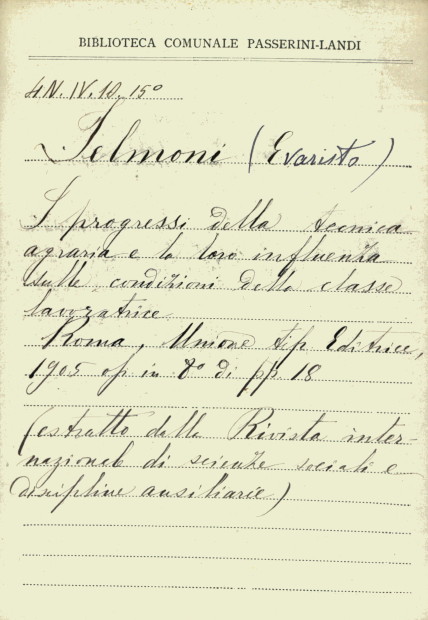 BIBLIOTECA COMUNALE PASSERINI-LANDI
4N.IV.10.15º
Telmoni (Evaristo)
I progressi della tecnica
agraria e la loro influenza
sulle condizioni della classe
lavoratrice
Roma, Unione tip Editrice,
1905 op in 8º di pp 18
(estratto dalla Rivista inter-
nazionale di scienze sociali e
discipline ausiliarie)